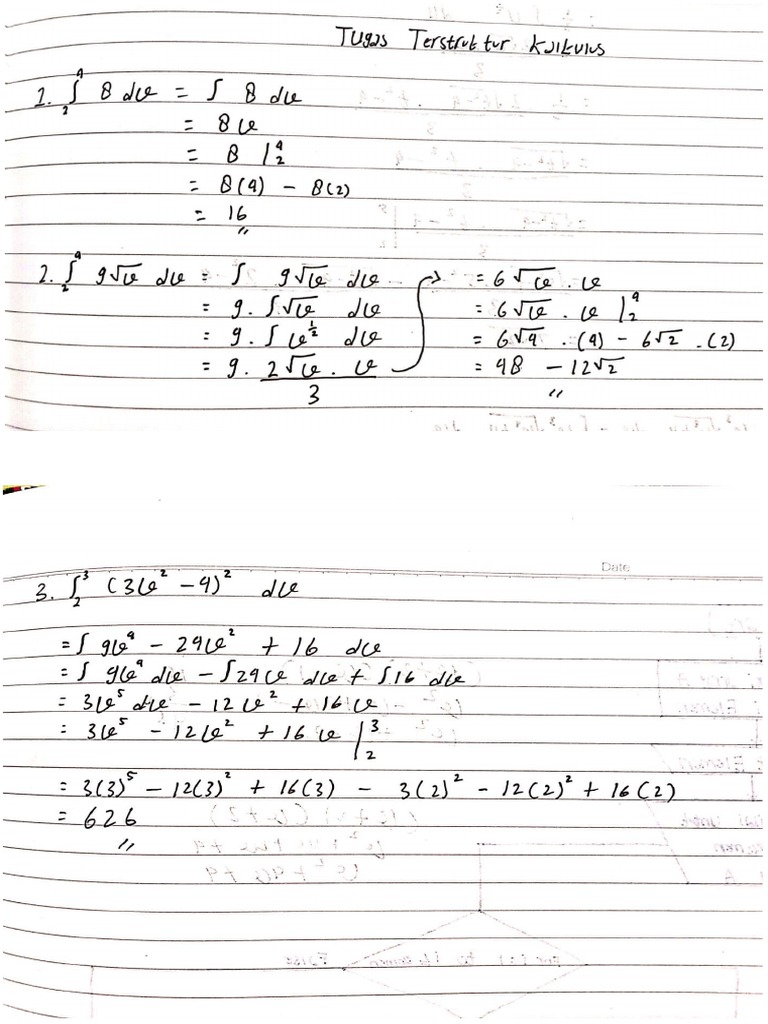 Tugas Terstruktur Kalkulus
1. ∫₂⁴ 8 dx = ∫ 8 dx
= 8x
= 8 |₂⁴
= 8(4) - 8(2)
= 16
2. ∫₂⁴ 9√x dx = ∫ 9√x dx
= 9. ∫√x dx
= 9. ∫ x^½ dx
= 9. 2√x . x / 3
= 6√x . x
= 6√x . x |₂⁴
= 6√4 . (4) - 6√2 . (2)
= 48 - 12√2
Date
3. ∫₂³ (3x² - 4)² dx
= ∫ 9x⁴ - 24x² + 16 dx
= ∫ 9x⁴ dx - ∫24x dx + ∫16 dx
= 3x⁵ dx - 12x² + 16x
= 3x⁵ - 12x² + 16x |₂³
= 3(3)⁵ - 12(3)² + 16(3) - 3(2)² - 12(2)² + 16(2)
= 626